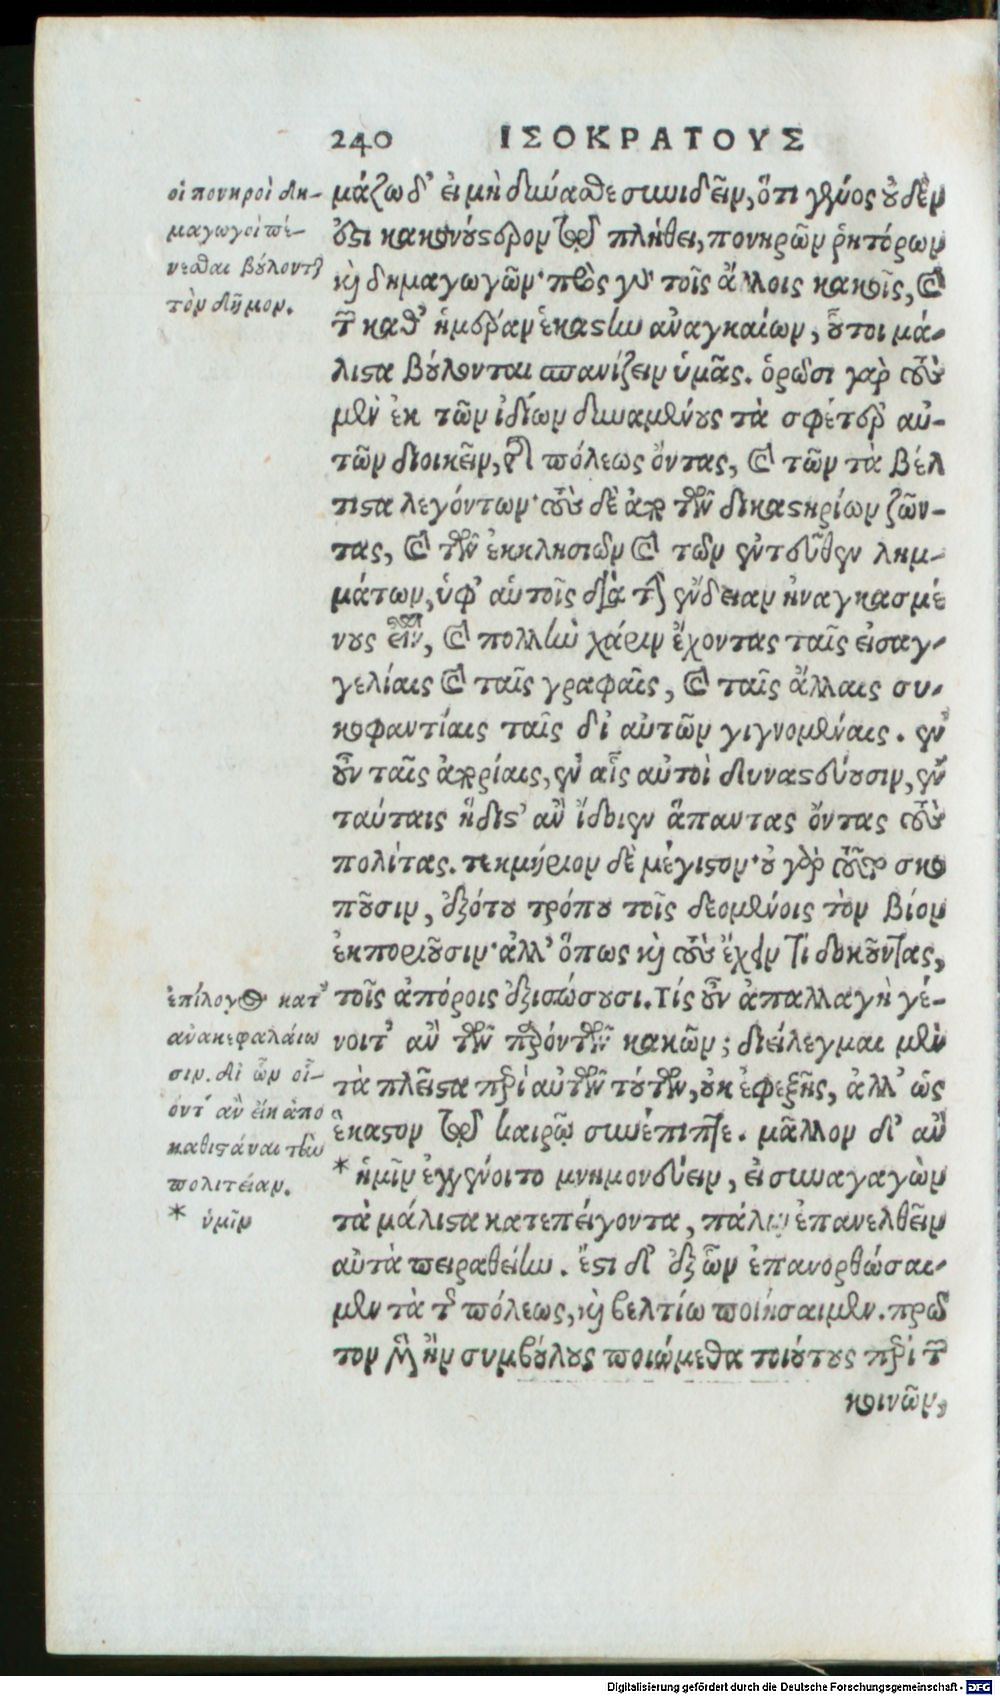 240 ΙΣΟΚΡΑΤΟΥΣ
οἱ πονηροὶ δη-
μαγωγοὶ πέ-
νεσθαι βούλονται
τὸν δῆμον.
μάζω δ' εἰ μὴ δύνασθε συνιδεῖν, ὅτι γένος οὐδέν
ἐστι κακονούστερον τῷ πλήθει, πονηρῶν ῥητόρων
καὶ δημαγωγῶν· πρὸς γὰρ τοῖς ἄλλοις κακοῖς, καὶ
τῶν καθ' ἡμέραν ἑκάστην ἀναγκαίων, οὗτοι μά-
λιστα βούλονται σπανίζειν ὑμᾶς. ὁρῶσι γὰρ τοὺς
μὲν ἐκ τῶν ἰδίων δυναμένους τὰ σφέτερ' αὐ-
τῶν διοικεῖν, τῆς πόλεως ὄντας, καὶ τῶν τὰ βέλ
τιστα λεγόντων· τοὺς δὲ ἀπὸ τῶν δικαστηρίων ζῶν-
τας, καὶ τῶν ἐκκλησιῶν καὶ τῶν ἐντεῦθεν λημ-
μάτων, ὑφ' αὑτοῖς διὰ τὴν ἔνδειαν ἠναγκασμέ
νους εἶναι, καὶ πολλὴν χάριν ἔχοντας ταῖς εἰσαγ-
γελίαις καὶ ταῖς γραφαῖς, καὶ ταῖς ἄλλαις συ-
κοφαντίαις ταῖς δι' αὐτῶν γιγνομέναις. ἐν
οὖν ταῖς ἀπορίαις, ἐν αἷς αὐτοὶ δυναστεύουσιν, ἐν
ταύταις ἥδιστ' ἂν ἴδοιεν ἅπαντας ὄντας τοὺς
πολίτας. τεκμήριον δὲ μέγιστον· οὐ γὰρ τοῦτο σκο
ποῦσιν, ἐξ ὅτου τρόπου τοῖς δεομένοις τὸν βίον
ἐκποριοῦσιν· ἀλλ' ὅπως καὶ τοὺς ἔχειν τι δοκοῦντας,
τοῖς ἀπόροις ἐξισώσουσι. Τίς οὖν ἀπαλλαγὴ γέ-
νοιτ' ἂν τῶν παρόντων κακῶν; διείλεγμαι μὲν
τὰ πλεῖστα περὶ αὐτῶν τούτων, οὐκ ἐφεξῆς, ἀλλ' ὡς
ἕκαστον τῷ καιρῷ συνέπιπτε. μᾶλλον δ' ἂν
* ἡμῖν ἐγγένοιτο μνημονεύειν, εἰ συναγαγὼν
τὰ μάλιστα κατεπείγοντα, πάλιν ἐπανελθεῖν
αὐτὰ πειραθείην. ἔστι δ' ἐξ ὧν ἐπανορθώσαι-
μεν τὰ τῆς πόλεως, καὶ βελτίω ποιήσαιμεν. πρῶ
τον μὲν ἢν συμβούλους ποιώμεθα τοιούτους περὶ τῶν
κοινῶν,
ἐπίλογος κατ'
ἀνακεφαλαίω
σιν. δι' ὧν οἷ-
όντ' ἂν εἴη ἀπο
καθιστάναι τὴν
πολιτείαν.
* ὑμῖν
Digitalisierung gefördert durch die Deutsche Forschungsgemeinschaft - DFG